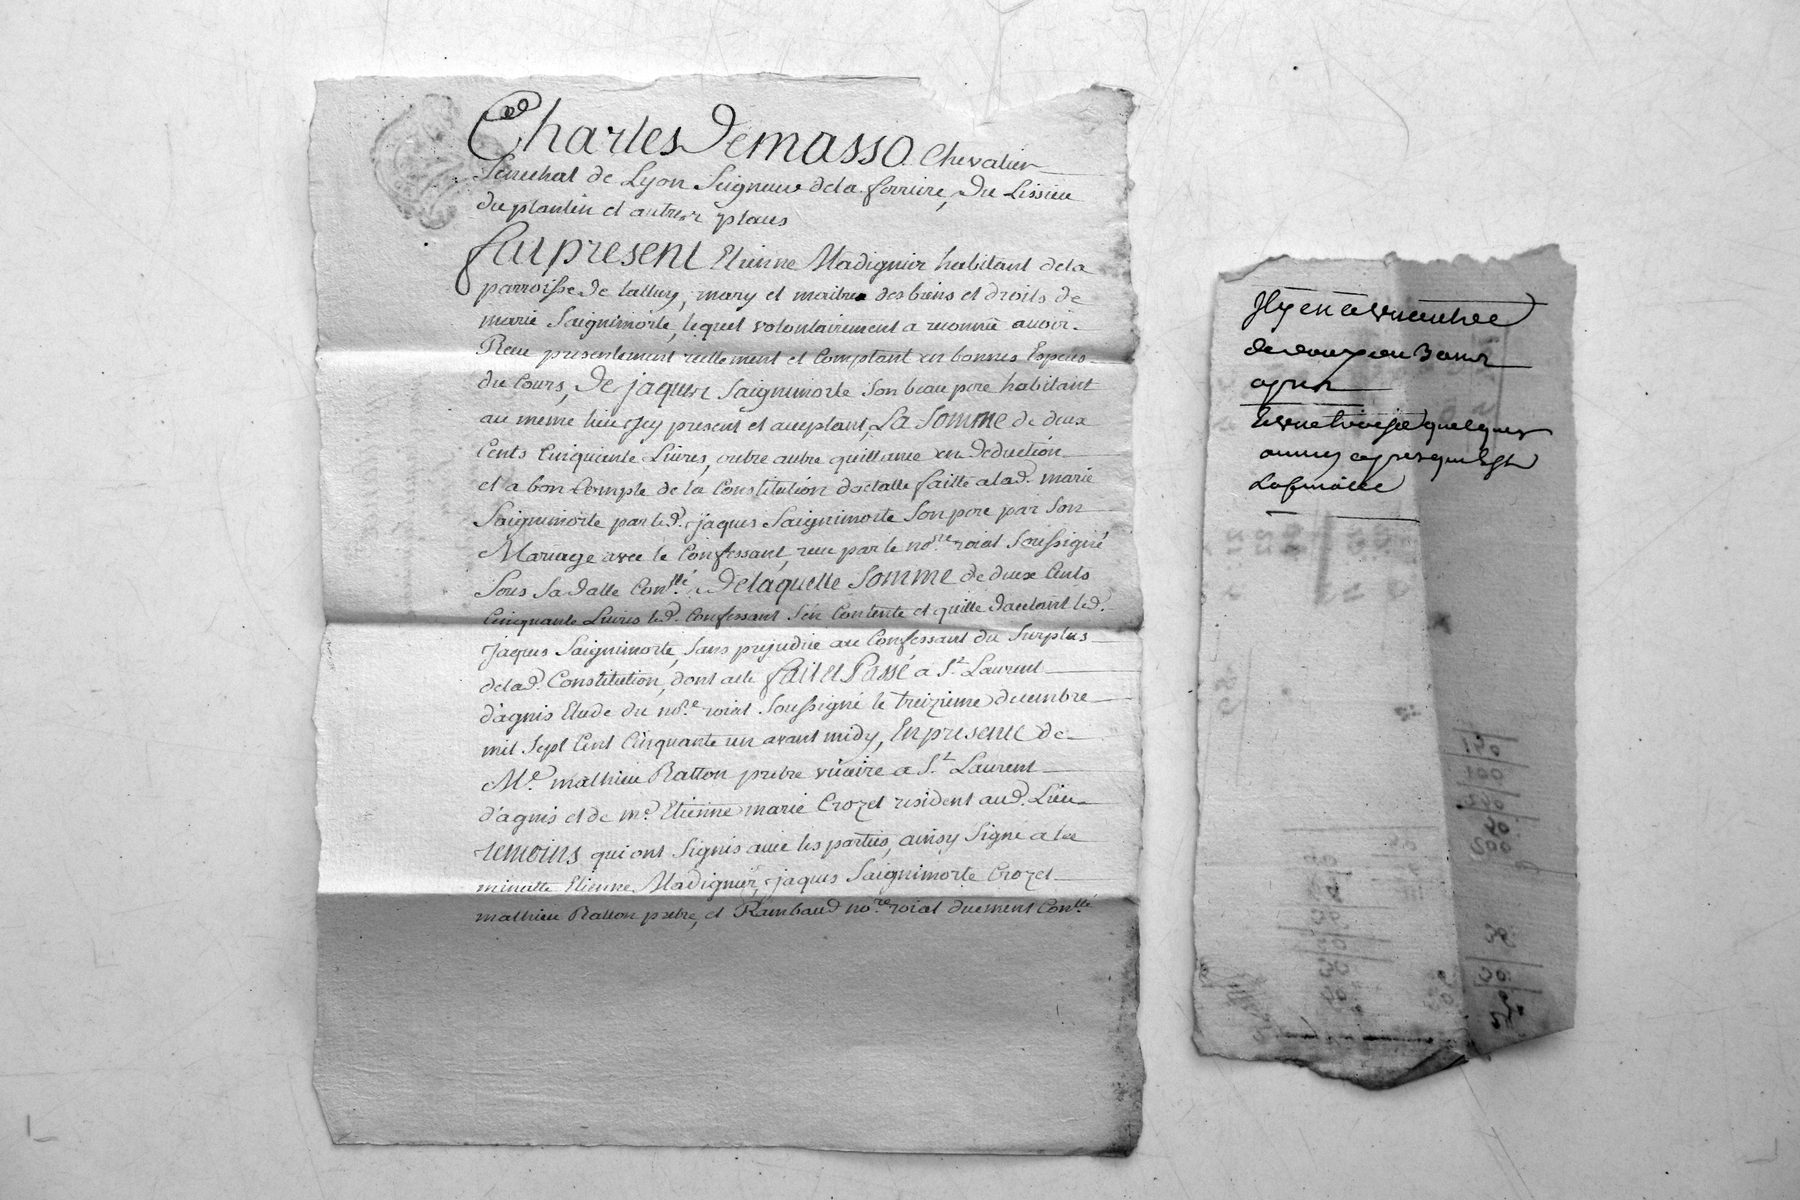 Charles Demasso. Chevalier
Senechal de Lyon Seigneur dela ferriere, Du Lissieu
du plantin et autres places
fut present Etienne Madignier habitant dela
parroisse de talluy, mary et maitre des biens et droits de
marie Saignimorte, lequel volontairement a reconnu avoir
Receu presentement reellement et Comptant en bonnes Especes
du Cours, De jaques Saignimorte Son beau pere habitant
au meme lieu icy present et aceptant, La Somme de deux
Cents Cinquante Livres, outre autre quittance en Deduction
et a bon Compte de la Constitution dotalle faitte alad. marie
Saignimorte par led. jaques Saignimorte Son pere par Son
Mariage avec le Confessant, receu par le nore. roial Soussigné
Sous Sa Datte Conllé, De laquelle Somme de deux Cents
Cinquante Livres led. Confessant S'en Contente et quitte Dautant led.
jaques Saignimorte, Sans prejudice au Confessant du Surplus
delad. Constitution, dont acte fait et Passé a St. Laurent
d'agnis Etude du nore. roial Soussigné le treizieme decembre
mil Sept Cent Cinquante un avant midy, En presence de
Me. mathieu Ratton prebre vicaire a St. Laurent
d'agnis et de me. Etienne marie Crozet resident aud. Lieu
temoins qui ont Signés avec les parties, ainsy Signé a la
minutte Etienne Madignier, jaques Saignimorte Crozet
mathieu Ratton prebre, et Rambaud nore. roial duement Conllé
Il y en a une autre
de deux ou 3 ans
apres
Et une troisie quelques
années apres qui Est
La finalle